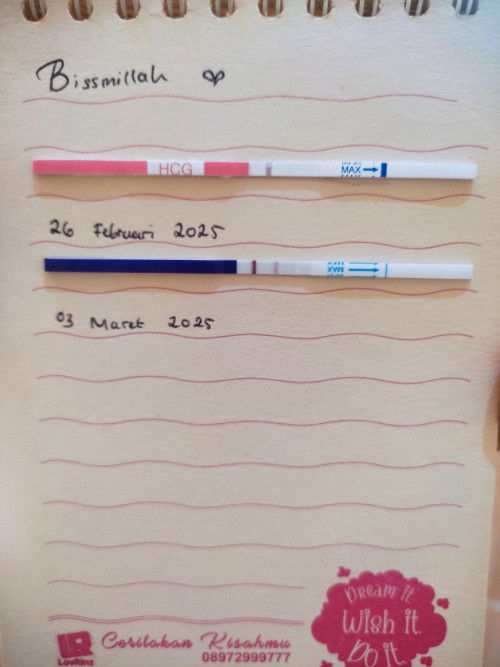 Bissmillah
HCG
MAX
26 Februari 2025
MAX
03 Maret 2025
Dream it.
Wish it.
Do it
Ceritakan Kisahmu
Lovitinz
08972999777